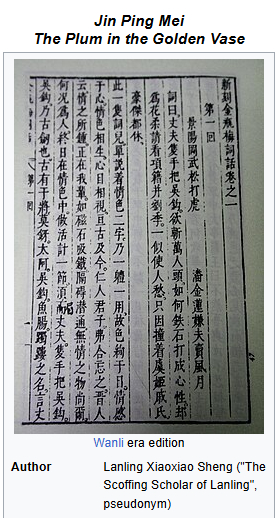 Jin Ping Mei
The Plum in the Golden Vase
新刻金瓶梅詞話卷之一
第一回
景陽岡武松打虎
潘金蓮嫌夫賣風月
詞曰丈夫隻手把吳鈎欲斬萬人頭如何鐵石打成心性却
為花柔請看項籍并劉季一似使人愁只因撞着虞姬戚氏
豪傑都休
此一隻詞兒單說着情色二字乃一體一用故色絢于目情感
于心情色相生心目相視亘古及今仁人君子弗合忘之晋人
云情之所鍾正在我輩如磁石吸鐵隔碍潛通無情之物尚爾
何况為人終日在情色中做活計一節須丈夫隻手把吳鈎
吳鈎乃古劍也古有干將莫鋣太阿吳鈎魚腸躅鏤之名言丈
Wanli era edition
Author
Lanling Xiaoxiao Sheng ("The
Scoffing Scholar of Lanling",
pseudonym)